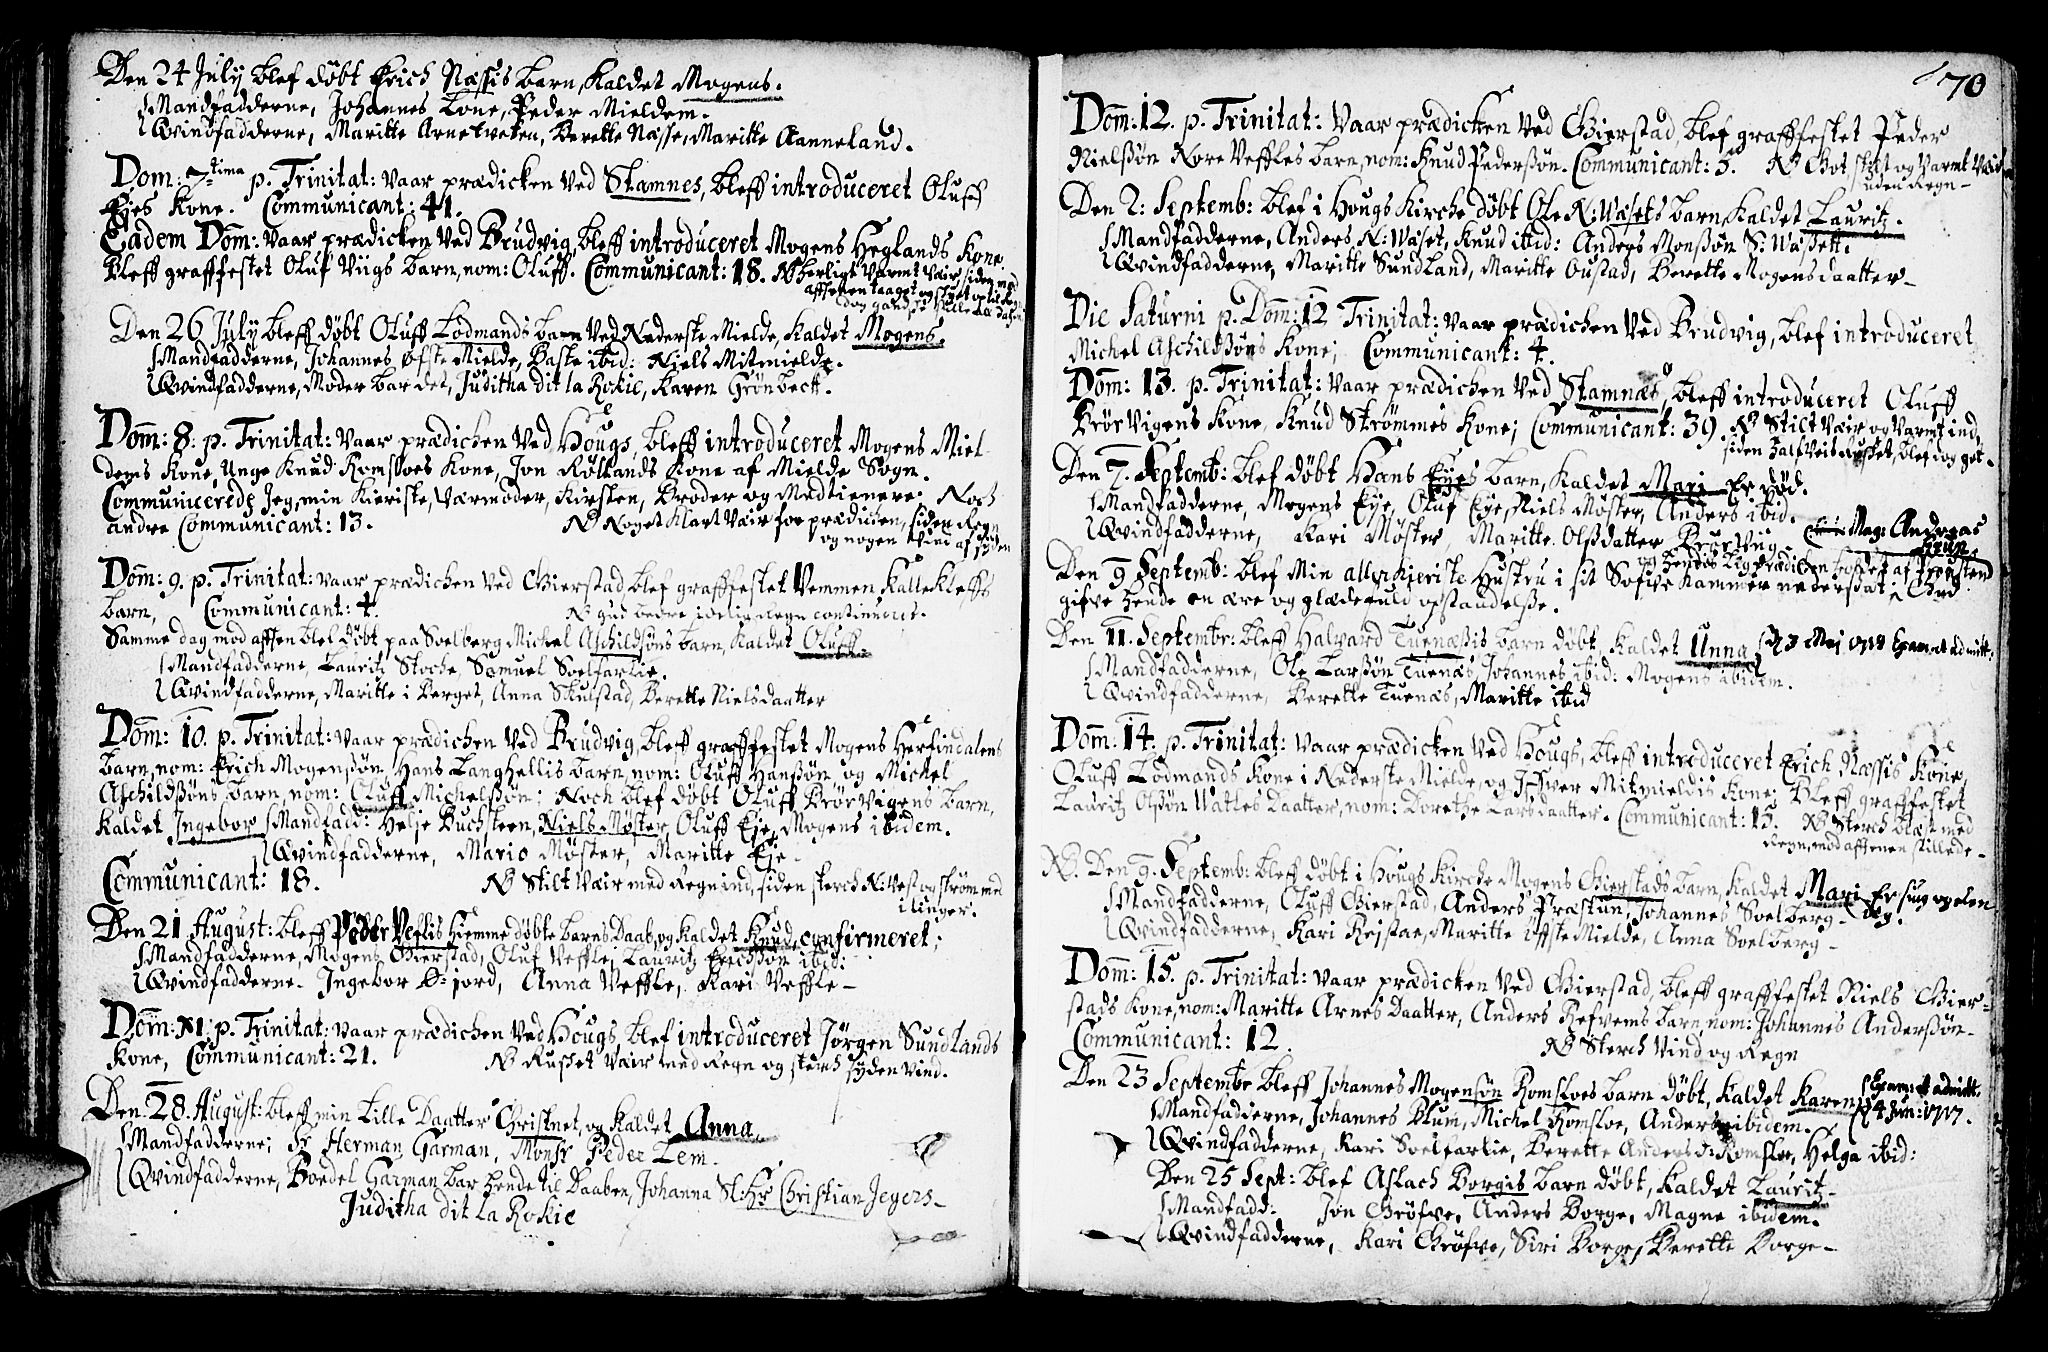 Den 24 July blef døbt Erich Næssis barn, kaldet Mogens.
Mandfadderne, Johannes Lone, Peder Mieldem.
Qvindfadderne, Maritte Arnetveten, Berette Næsse, Maritte Aanneland.
Dom: 7tima p. Trinitat: vaar prædicken ved Stamnes, bleff introduceret Oluff
Ejes Kone. Communicant: 41.
Eadem Dom: vaar prædicken ved Brudvig, bleff introduceret Mogens Heglands Kone.
Bleff grafffestet Oluf Viigs barn, nom: Oluff. Communicant: 18. NB herligt varmt vær, siden mod
afftenen taaget og
Den 26 July bleff døbt Oluff Lødmands barn ved Nederste Mielde, kaldet Mogens.
Mandfadderne, Johannes Øfste Mielde, Baste ibid: Niels Mitmielde.
Qvindfadderne, Moder bar det, Juditha dit la Rokie, Karen Grönbeck.
Dom: 8. p. Trinitat: vaar prædichen ved Hougs, bleff introduceret Mogens Miel-
dems Kone, Unge Knud Romsloes Kone, Jon Røllands Kone af Mielde Sogn.
Communicerede Jeg, min Kieriste, værmoder, Kirsten, Broder og Medtienere. Noch
andre Communicant: 13. NB Noget klart vær for prædichen, siden Regn
og nogen vind af syden
Dom: 9. p. Trinitat: vaar prædichen ved Gierstad, blef grafffestet Vemmen Kallekleffs
barn, Communicant: 4. NB Gud bedre idelig Regn continuerit.
Samme dag mod afften blef døbt paa Soelberg Michel Aschildsøns barn, kaldet Oluff.
Mandfadderne, Lauritz Stoche, Samuel Soelfarlie.
Qvindfadderne, Maritte i Berget, Anna Skulstad, Berette Nielsdaatter
Dom: 10. p. Trinitat: vaar prædichen ved Brudvig, bleff grafffestet Mogens Herfindalens
barn, nom: Erich Mogensøn, Hans Langhellis barn, nom: Oluff Hansøn og Michel
Aschildsøns barn, nom: Oluff Michelsøn; Noch blef døbt Oluff Brörvigens barn,
kaldet Ingebor Mandfadd: Helje Buchsteen, Niels Møster, Oluff Eje, Mogens ibidem.
Qvindfadderne, Mario Møster, Maritte Eje
Communicant: 18. NB Stilt vær med Regn ind, siden sterch N: vest og strøm med
ilinger.
Den 21 August: bleff Peder Veflis hjemme døbte barns Daab, og kaldet Knud, confirmeret;
Mandfadderne, Mogens Gierstad, Oluf Veffle, Lauritz Erichsøn ibid:
Qvindfadderne. Ingebor Ø-jord, Anna Veffle, Kari Veffle
Dom: XI. p. Trinitat: vaar prædichen ved Hougs, blef introduceret Jørgen Sundlands
Kone, Communicant: 21. NB Russet vær med Regn og sterch syden vind.
Den 28. August: bleff min Lille Daatter Christnet, og kaldet Anna.
Mandfadderne; Sr Herman Garman, Monsr Peder Lem.
Qvindfadderne, Boedel Garman bar hende til Daaben, Johanna Sl: Hr Christian Jegers
Juditha dit la Rokie
70
Dom: 12. p. Trinitat: vaar prædicken ved Gierstad, blef grafffestet Peder
Nielsøn Nore Veffles barn, nom: Knud Pedersøn. Communicant: 3. NB Got, stilt og varmt vær
uden Regn
Den 2: Septemb: blef i Hougs Kirche døbt Ole N: Wasets barn, kaldet Lauritz.
Mandfadderne, Anders N: Waset, Knud ibid: Anders Monsøn S: Wassett.
Qvindfadderne, Maritte Sundland, Maritte Oustad, Berette Mogensdaatter
Die Saturni p. Dom: 12 Trinitat: vaar prædichen ved Brudvig, blef introduceret
Michel Aschildsøns Kone; Communicant: 4.
Dom: 13. p. Trinitat: vaar prædichen ved Stamnæs, bleff introduceret Oluff
Brörvigens Kone, Knud Strömmes Kone; Communicant: 39. NB Stilt vær og varmt ind,
siden halfveis Russet, blef dog got.
Den 7. Septemb: blef døbt Hans Eyes barn, kaldet Mari Er død.
Mandfadderne, Mogens Eye, Oluf Eye, Niels Møster, Anders ibid.
Qvindfadderne, Kari Møster, Maritte Olsdatter Brurviig Mag: Andreas
og hendes Ligprædichen holdet af Prousten
Den 9 Septemb: blef Min allerkjeriste Hustru i sit Sofve Kammer nedersat; Gud
gifve hende en ære og glædefuld opstandelsse.
Den 11. Septembr: bleff Halvard Tuenæssis barn døbt, kaldet Unna d. 3 Maj 1718 Exam: et admitt.
Mandfadderne, Ole Larsøn Tuenæs, Johannes ibid: Mogens ibidem.
Qvindfadderne, Berette Tuenæs, Maritte ibid
Dom: 14. p. Trinitat: vaar prædicken ved Hougs, bleff introduceret Erich Næssis Kone,
Oluff Lødmands Kone i Nederste Mielde, og Ifver Mitmieldis Kone; Bleff grafffestet
Lauritz Olsøn Watles Daatter, nom: Dorethe Larsdaatter. Communicant: 15. NB Sterch blæst med
Regn, mod afftenen stillede
NB. Den 9. Septemb: bleff døbt i Hougs Kirche Mogens Gierstads barn, kaldet Mari
Mandfadderne, Oluff Gierstad, Anders Præstun, Johannes Soelberg
Qvindfadderne, Kari Rejstae, Maritte Øfste Mielde, Anna Soelberg
Dom: 15. p. Trinitat: vaar prædicken ved Gierstad, bleff grafffestet Niels Gier-
stads Kone, nom: Maritte Arnes Daatter, Anders Refvems barn, nom: Johannes Andersøn
Communicant: 12. NB Sterch vind og Regn
Den 23 Septembr bleff Johannes Mogensøn Romsloes barn døbt, kaldet Karen Exam: et admitt.
d. 4 Jun: 1717.
Mandfadderne, Johannes Blum, Michel Romsloe, Anders ibidem.
Qvindfadderne, Kari Soelfarlie, Berette Anders D: Romsloe, Helga ibid:
Den 25 Sept: blef Aslach Borgis barn døbt, kaldet Lauritz
Mandfadd: Jon Gröfve, Anders Borge, Magne ibidem.
Qvindfadderne, Kari Gröfve, Siri Borge, Berette Borge